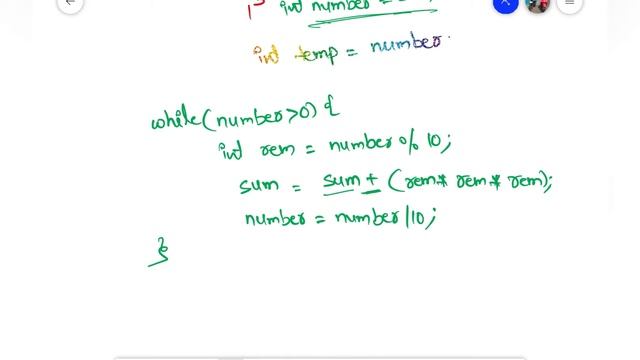 int number =
int temp = number.
while(number>0) {
int rem = number % 10;
sum = sum + (rem * rem * rem);
number = number/10;
}